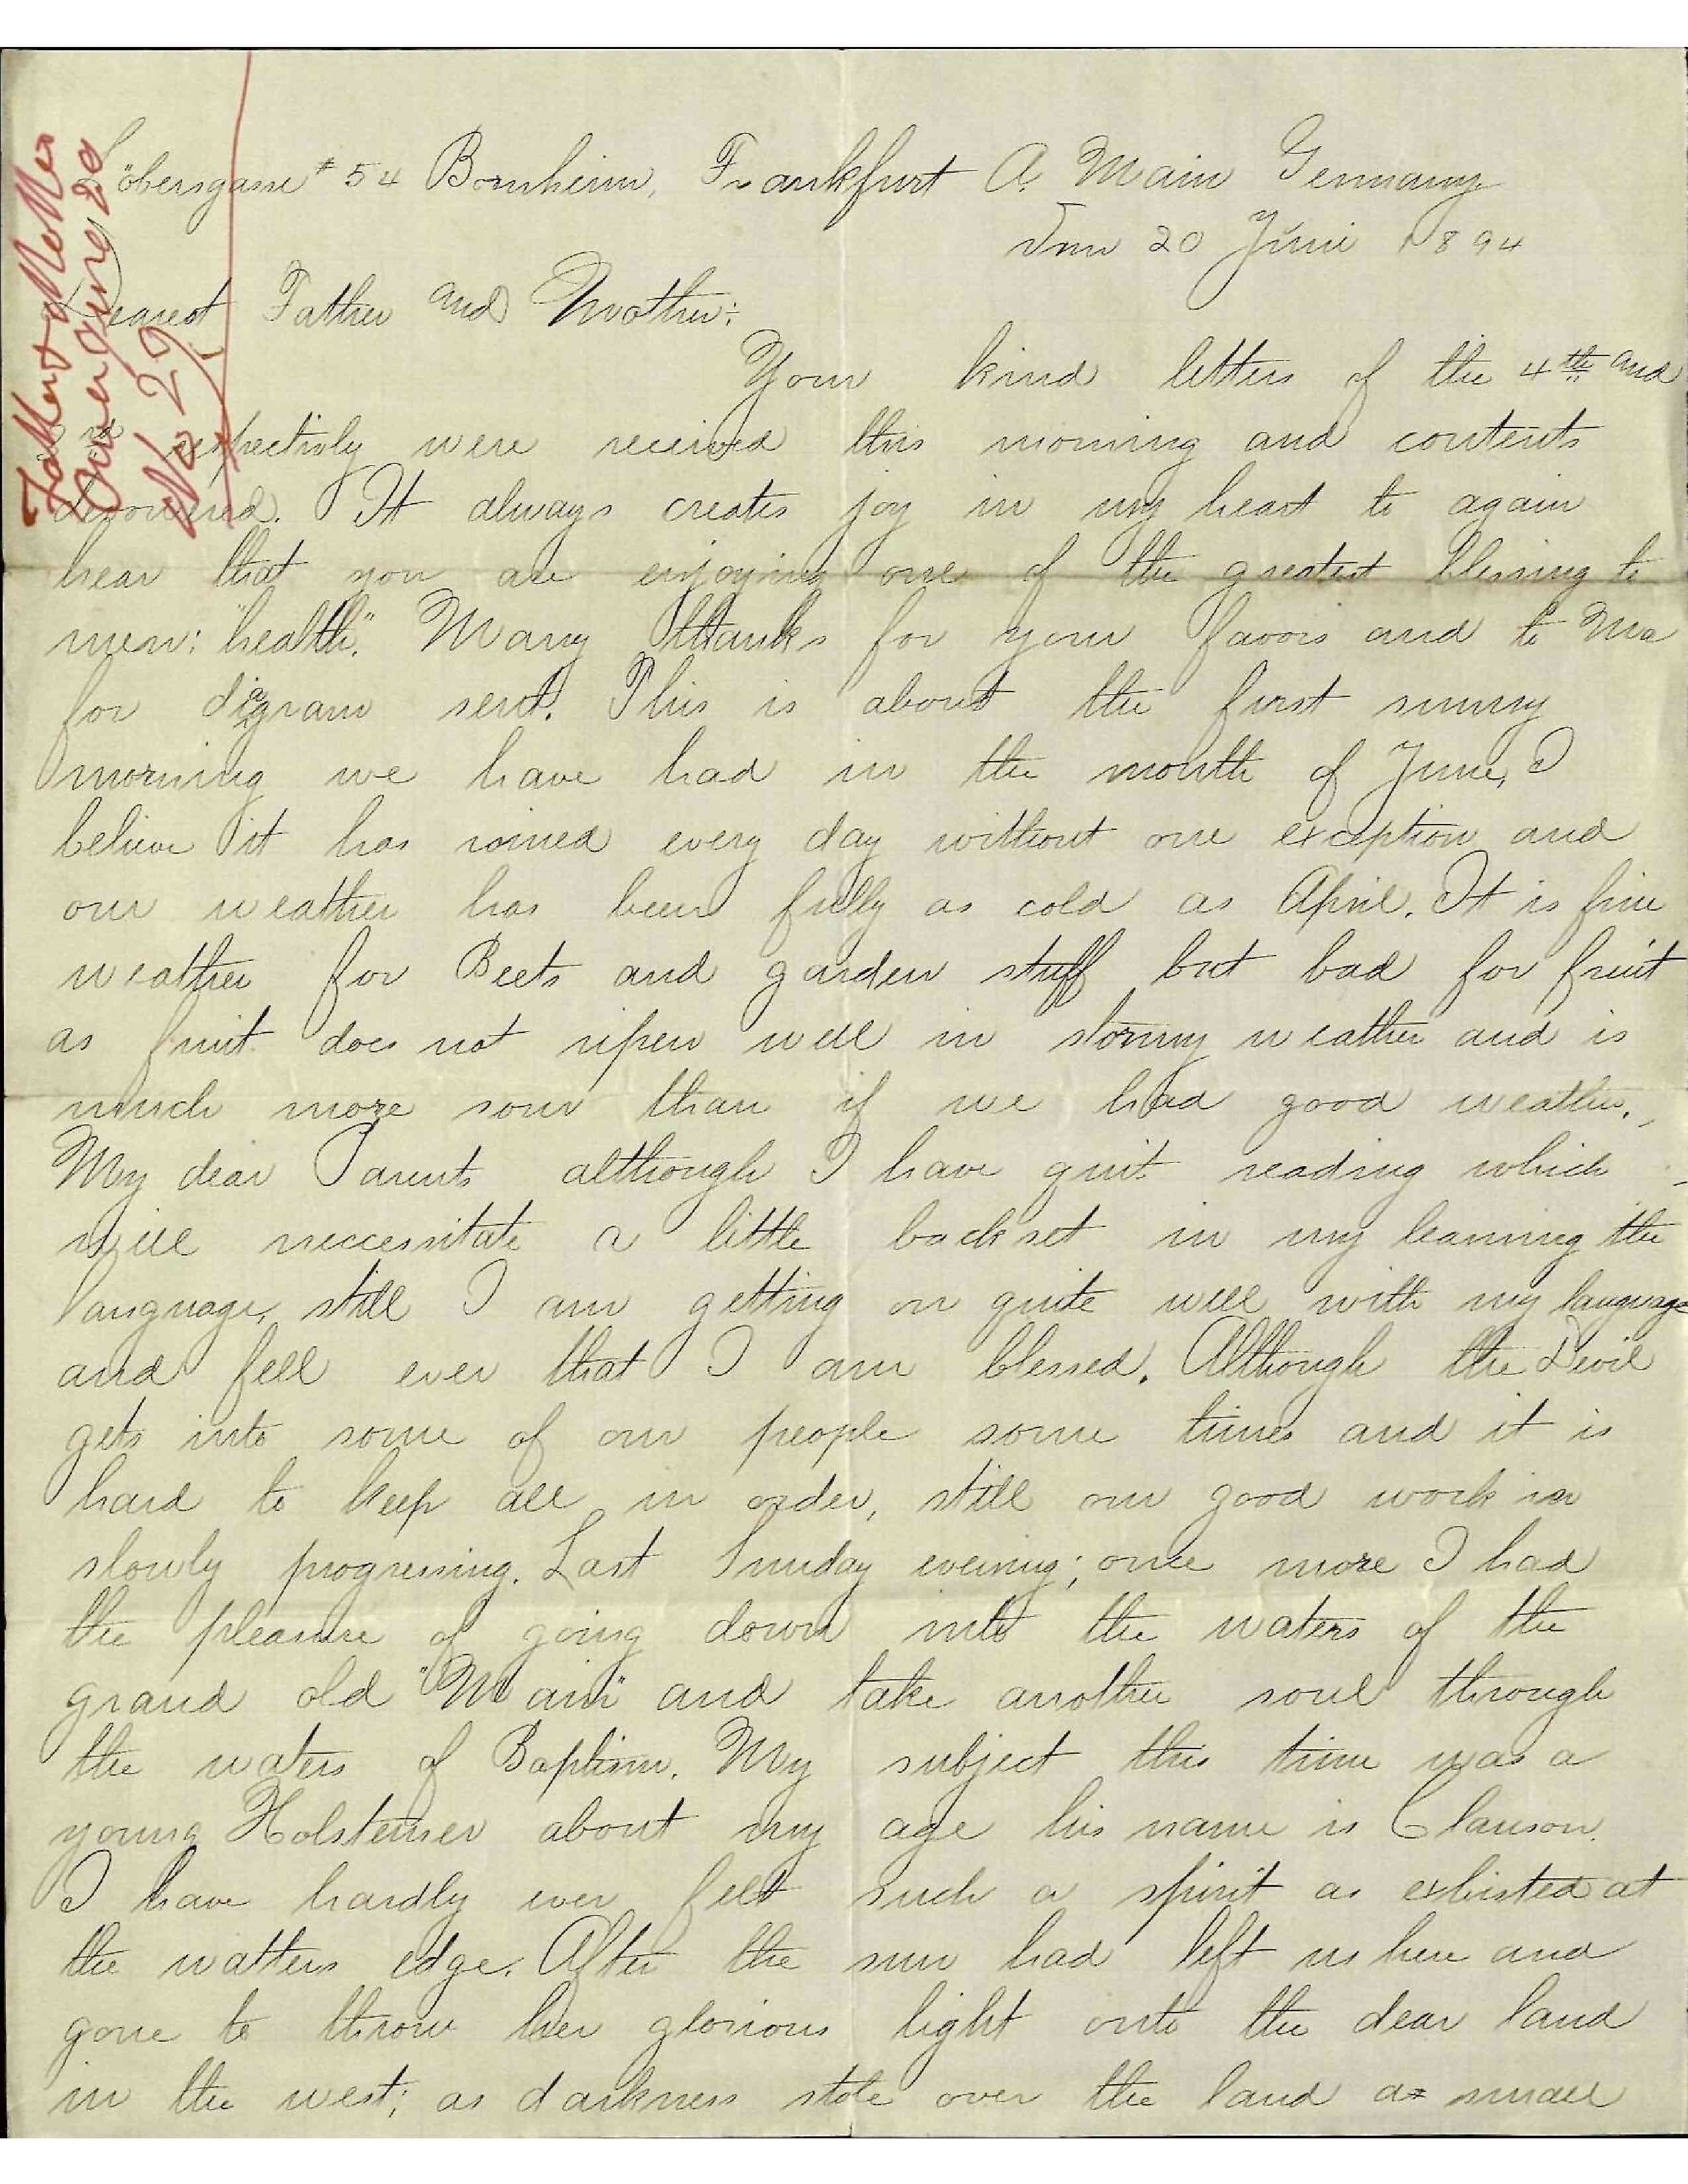 Löbersgasse #54 Bornheim, Frankfurt A. Main Germany
20 Juni 1894
Dearest Father and Mother:
Your kind letters of the 4th and
3rd respectivly were received this morning and contents
devoured. It always creates joy in my heart to again
hear that you are enjoying one of the greatest blessing to
men: "health." Many thanks for your favors and to Ma
for diagram sent. This is about the first sunny
morning we have had in the month of June, I
believe it has rained every day without one exception and
our weather has been fully as cold as April. It is fine
weather for Beets and garden stuff but bad for fruit
as fruit does not ripen well in stormy weather and is
much more sour than if we had good weather.
My dear Parents although I have quit reading which
will neccessitate a little backset in my learning the
language, still I am getting on quite well with my language
and fell ever that I am blessed. Although the Devil
gets into some of our people some times and it is
hard to keep all in order, still our good work is
slowly progressing. Last Sunday evening; once more I had
the pleasure of going down into the waters of the
grand old "Main" and take another soul through
the waters of Baptism. My subject this time was a
young Holsteiner about my age his name is Clauson.
I have hardly ever felt such a spirit as exhisted at
the watters edge. After the sun had left us here and
gone to throw her glorious light onto the dear land
in the west; as darkness stole over the land a small
Father & Mother
June 20
No 29